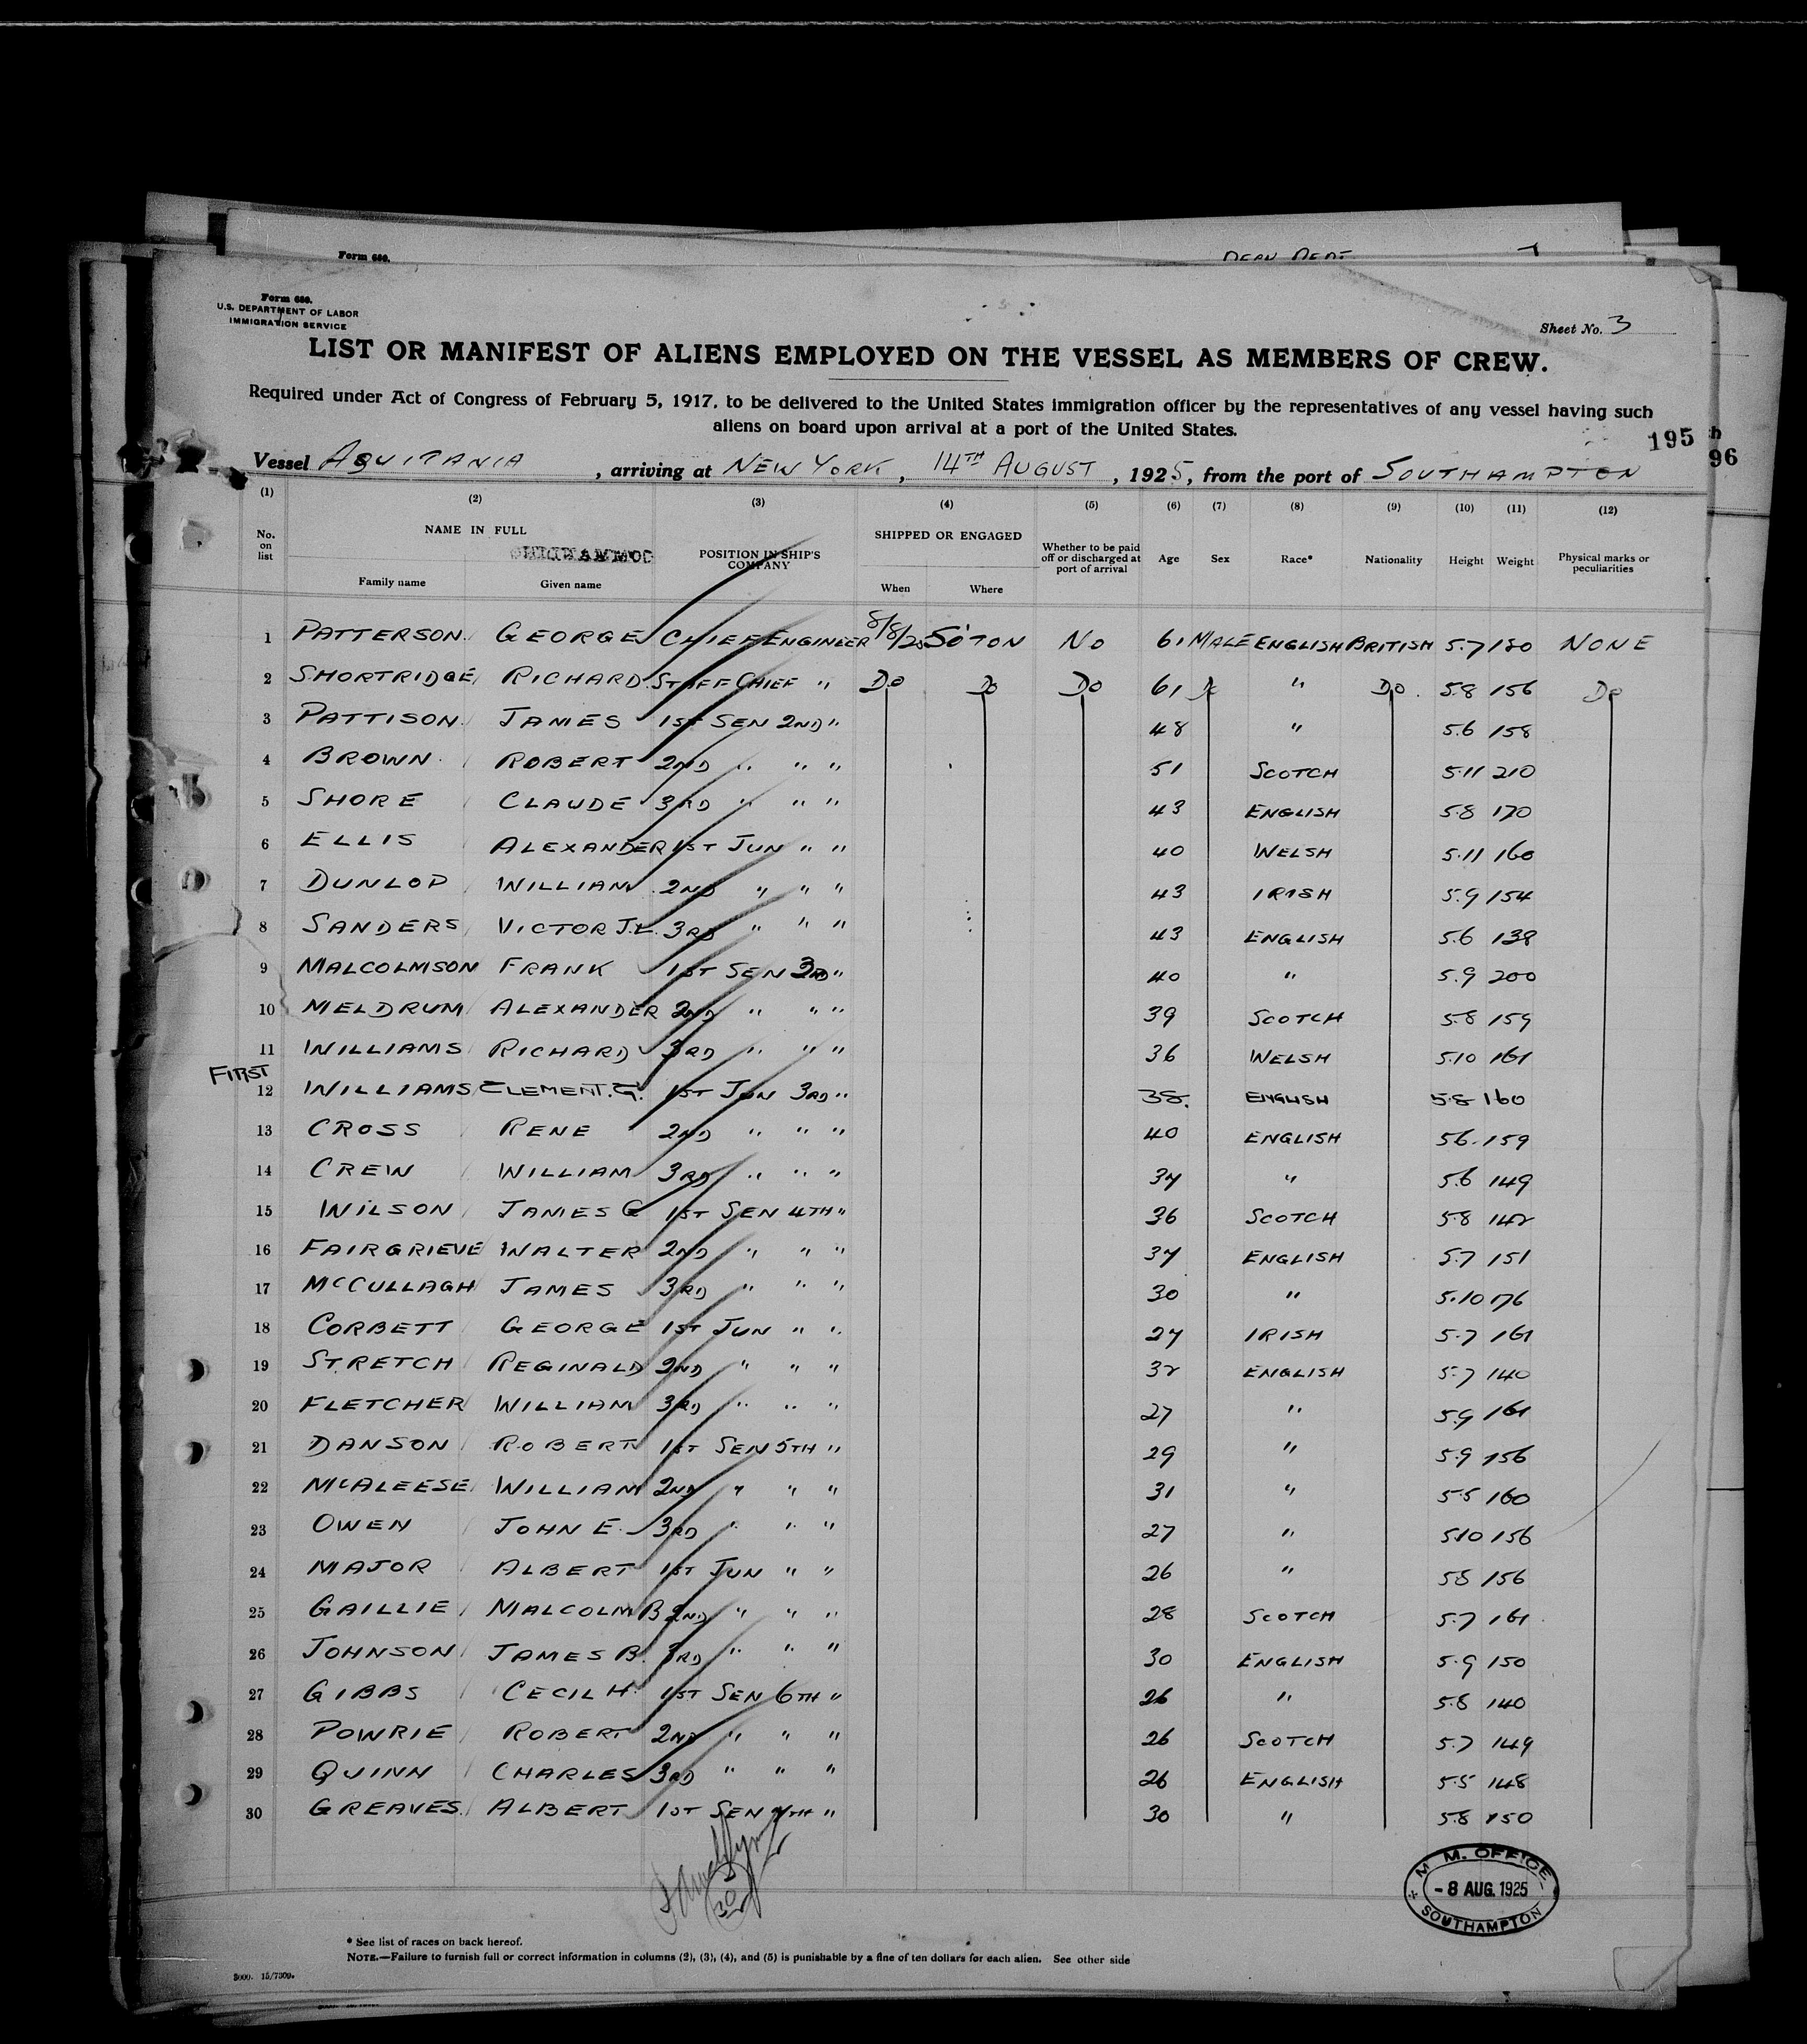 Form 680.
DECK DEPT
Form 680.
U.S. DEPARTMENT OF LABOR
IMMIGRATION SERVICE
Sheet No. 3
LIST OR MANIFEST OF ALIENS EMPLOYED ON THE VESSEL AS MEMBERS OF CREW.
Required under Act of Congress of February 5, 1917, to be delivered to the United States immigration officer by the representatives of any vessel having such
aliens on board upon arrival at a port of the United States.
195
96
Vessel AQUITANIA, arriving at NEW YORK, 14TH AUGUST, 1925, from the port of SOUTHAMPTON
(1) (2) (3) (4) (5) (6) (7) (8) (9) (10) (11) (12)
No. on list NAME IN FULL Family name Given name POSITION IN SHIP'S COMPANY SHIPPED OR ENGAGED When Where Whether to be paid off or discharged at port of arrival Age Sex Race* Nationality Height Weight Physical marks or peculiarities
1 PATTERSON GEORGE CHIEF ENGINEER 8/8/25 SO'TON NO 61 MALE ENGLISH BRITISH 5.7 180 NONE
2 SHORTRIDGE RICHARD STAFF CHIEF " DO DO DO 61 " DO 5.8 156 DO
3 PATTISON JAMES 1ST SEN 2ND " 48 " 5.6 158
4 BROWN ROBERT 2ND " " " 51 SCOTCH 5.11 210
5 SHORE CLAUDE 3RD " " " 43 ENGLISH 5.8 170
6 ELLIS ALEXANDER 1ST JUN " " 40 WELSH 5.11 160
7 DUNLOP WILLIAM 2ND " " " 43 IRISH 5.9 154
8 SANDERS VICTOR J.L. 3RD " " " 43 ENGLISH 5.6 138
9 MALCOLMSON FRANK 1ST SEN 3RD " 40 " 5.9 200
10 MELDRUM ALEXANDER 2ND " " " 39 SCOTCH 5.8 159
11 WILLIAMS RICHARD 3RD " " " 36 WELSH 5.10 161
FIRST
12 WILLIAMS CLEMENT.G. 1ST JUN 3RD " 38. ENGLISH 5.8 160
13 CROSS RENE 2ND " " " 40 ENGLISH 5.6. 159
14 CREW WILLIAM 3RD " " " 34 " 5.6 149
15 WILSON JAMES G 1ST SEN 4TH " 36 SCOTCH 5.8 142
16 FAIRGRIEVE WALTER 2ND " " " 34 ENGLISH 5.7 151
17 McCULLAGH JAMES 3RD " " " 30 " 5.10 176
18 CORBETT GEORGE 1ST JUN " " 24 IRISH 5.7 161
19 STRETCH REGINALD 2ND " " " 32 ENGLISH 5.7 140
20 FLETCHER WILLIAM 3RD " " " 27 " 5.9 161
21 DANSON ROBERT 1ST SEN 5TH " 29 " 5.9 156
22 McALEESE WILLIAM 2ND " " " 31 " 5.5 160
23 OWEN JOHN E. 3RD " " " 27 " 5.10 156
24 MAJOR ALBERT 1ST JUN " " 26 " 5.8 156
25 GAILLIE MALCOLM B 2ND " " " 28 SCOTCH 5.7 161
26 JOHNSON JAMES B. 3RD " " " 30 ENGLISH 5.9 150
27 GIBBS CECIL H. 1ST SEN 6TH " 26 " 5.8 140
28 POWRIE ROBERT 2ND " " " 26 SCOTCH 5.7 149
29 QUINN CHARLES 3RD " " " 26 ENGLISH 5.5 148
30 GREAVES ALBERT 1ST SEN 7TH " 30 " 5.8 150
M. M. OFFICE
- 8 AUG. 1925
SOUTHAMPTON
* See list of races on back hereof.
NOTE.—Failure to furnish full or correct information in columns (2), (3), (4), and (5) is punishable by a fine of ten dollars for each alien. See other side
3000. 15/7309.